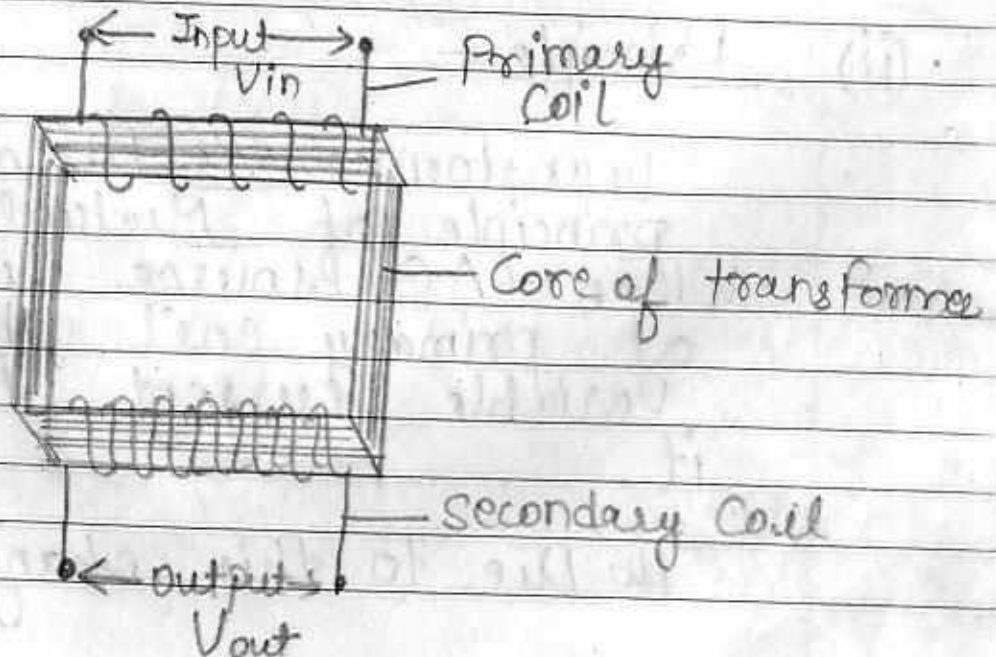 Input
Vin
Primary
Coil
Core of transformer
Secondary Coil
output
Vout